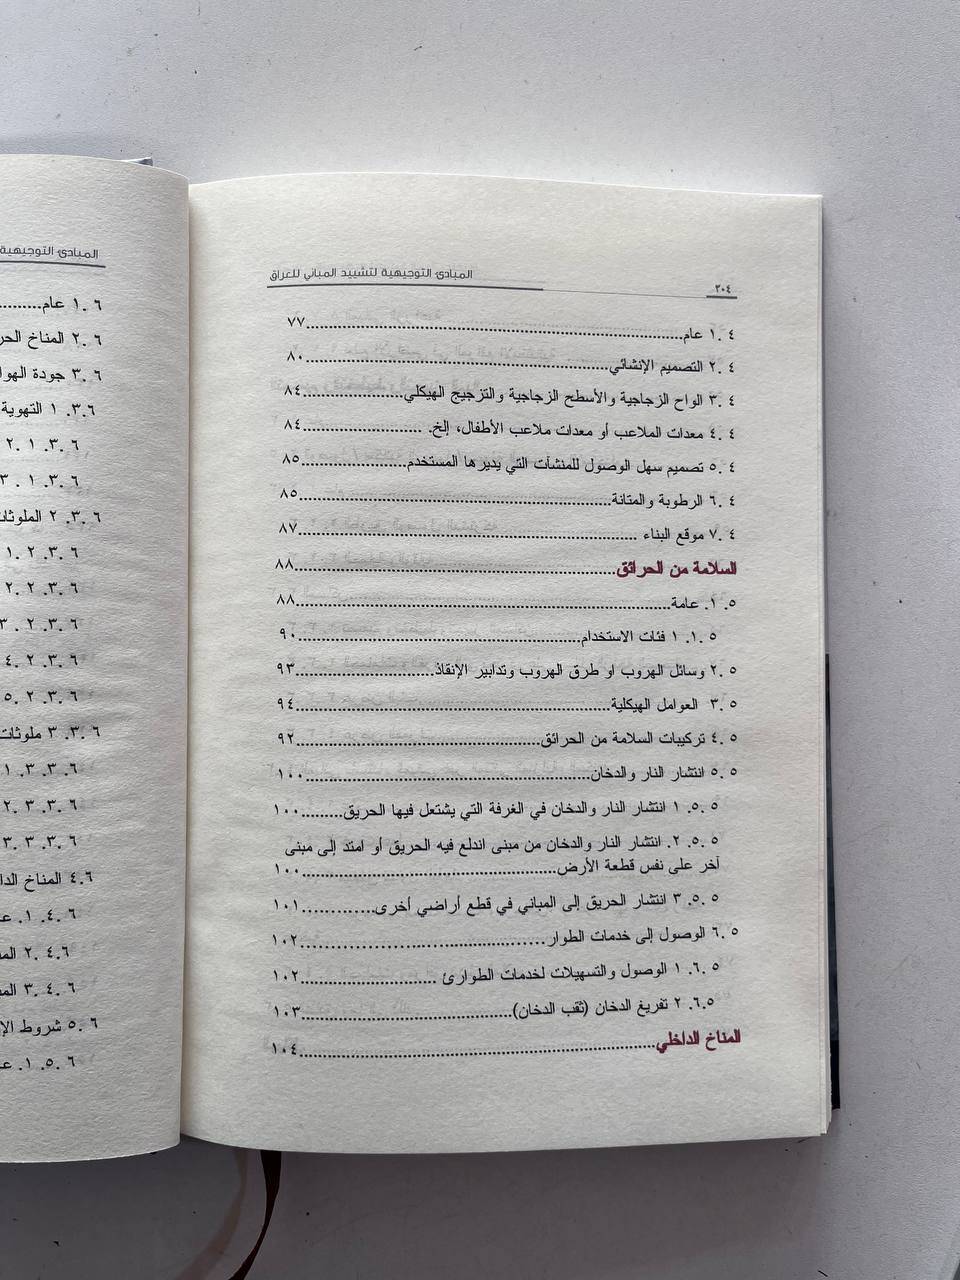 ٢٠٤
المبادئ التوجيهية لتشييد المباني للعراق
٤ .١ عام......٧٧
٤ .٢ التصميم الإنشائي......٨٠
٤ .٣ الواح الزجاجية والأسطح الزجاجية والتزجيج الهيكلي......٨٤
٤ .٤ معدات الملاعب أو معدات ملاعب الأطفال، إلخ. ......٨٤
٤ .٥ تصميم سهل الوصول للمنشآت التي يديرها المستخدم......٨٥
٤ .٦ الرطوبة والمتانة......٨٥
٤ .٧ موقع البناء ......٨٧
السلامة من الحرائق......٨٨
٥ .١. عامة......٨٨
٥ .١. ١ فئات الاستخدام......٩٠
٥ .٢ وسائل الهروب او طرق الهروب وتدابير الإنقاذ......٩٣
٥ .٣ العوامل الهيكلية......٩٤
٥ .٤ تركيبات السلامة من الحرائق......٩٢
٥ .٥ انتشار النار والدخان......١٠٠
٥ .٥. ١ انتشار النار والدخان في الغرفة التي يشتعل فيها الحريق......١٠٠
٥ .٥. ٢. انتشار النار والدخان من مبنى اندلع فيه الحريق أو امتد إلى مبنى
آخر على نفس قطعة الأرض......١٠٠
٥ .٥. ٣ انتشار الحريق إلى المباني في قطع أراضي أخرى......١٠١
٥ .٦ الوصول إلى خدمات الطوار......١٠٢
٥ .٦. ١ الوصول والتسهيلات لخدمات الطوارئ ......١٠٢
٥ .٦. ٢ تفريغ الدخان (ثقب الدخان)......١٠٣
المناخ الداخلي......١٠٤
المبادئ التوجيهية
٦ .١ عام......
٦ .٢ المناخ
٦ .٣ جودة
٦ .٣. ١ التهوية
٦ .٣. ١ .٢
٦ .٣. ١ .٣
٦ .٣. ٢
٦ .٣. ٢ .١
٦ .٣. ٢ .٢
٦ .٣. ٢ .٣
٦ .٣. ٢ .٤
٦ .٣. ٢ .٥
٦ .٣. ٣ ملوثات
٦ .٣. ٣ .١
٦ .٣. ٣ .٢
٦ .٣. ٣ .٣
٦ .٤ المناخ
٦ .٤. ١.
٦ .٤. ٢
٦ .٤. ٣
٦ .٥ شروط
٦ .٥. ١.